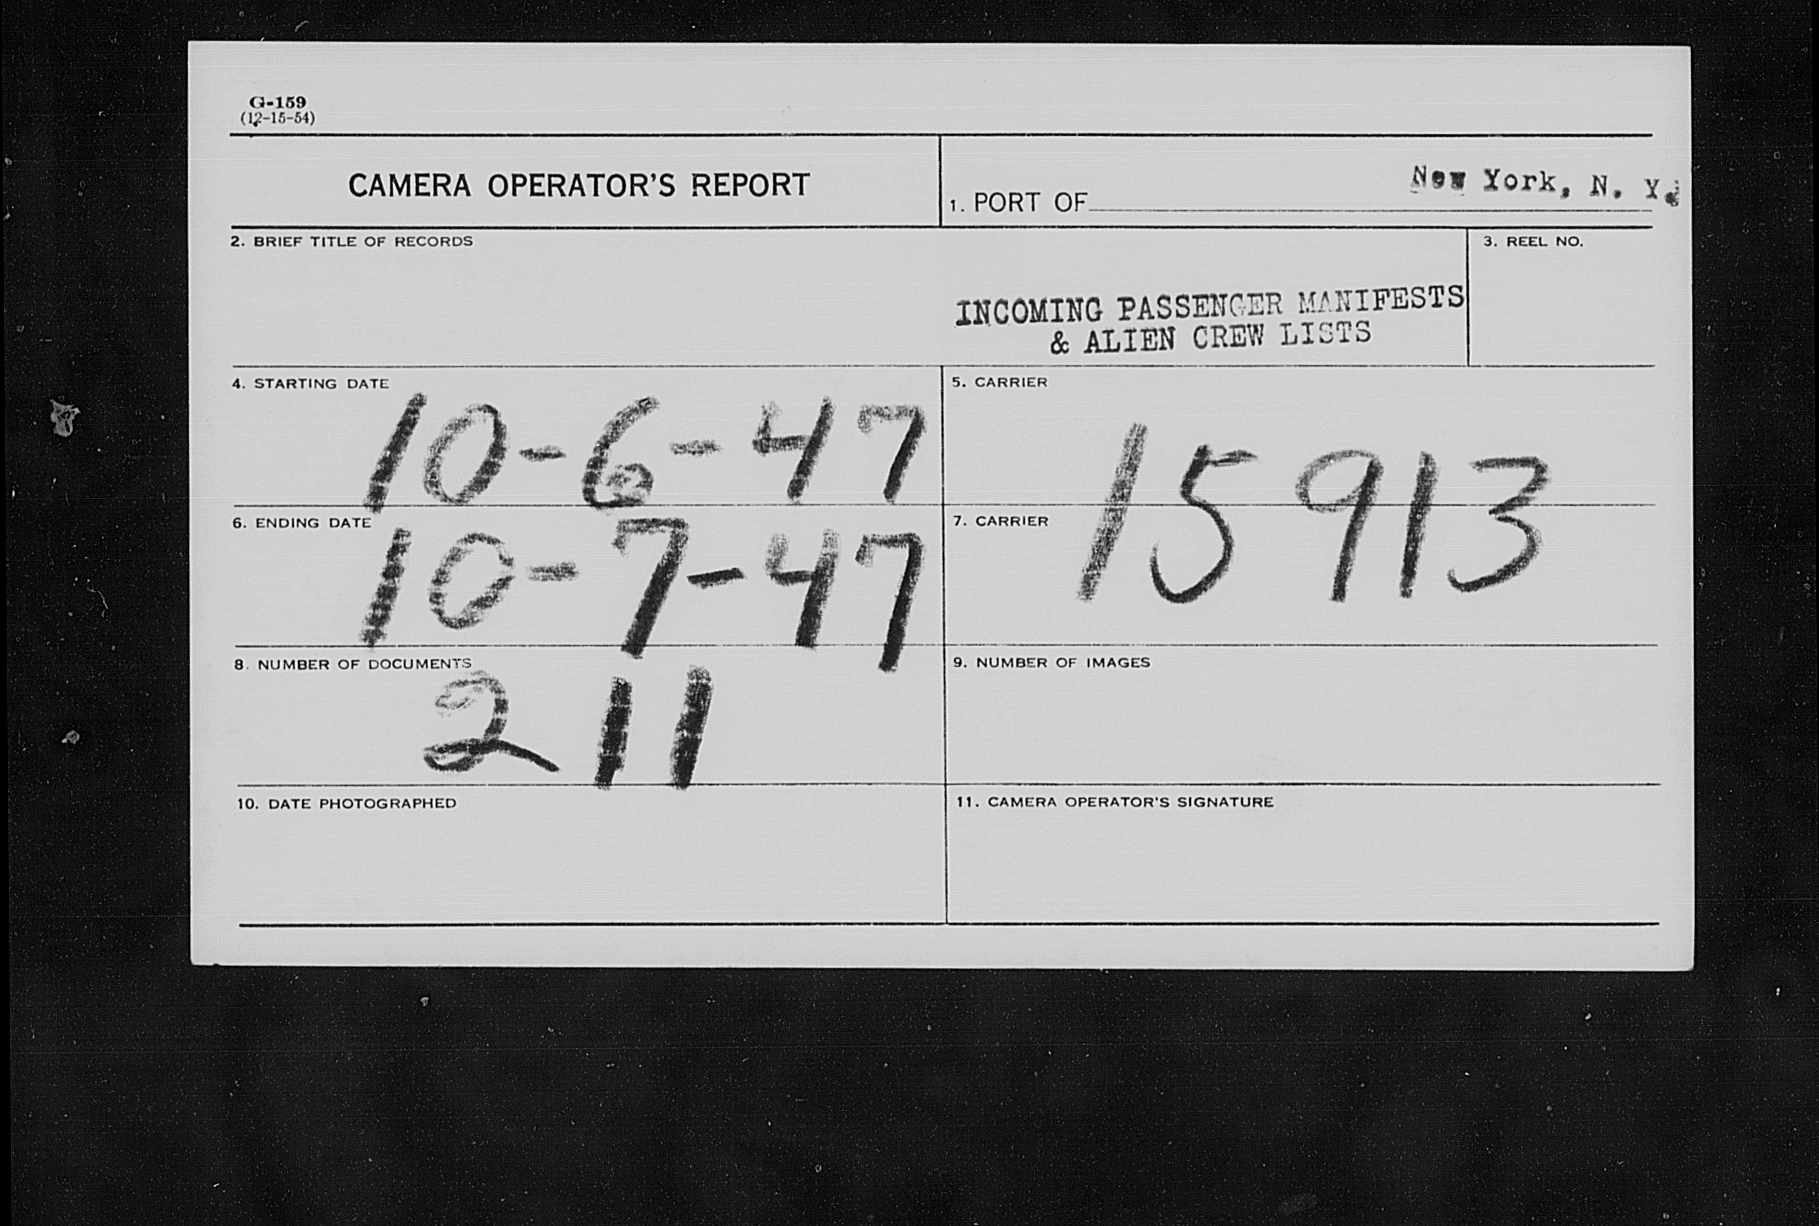 G-159
(12-15-54)
CAMERA OPERATOR'S REPORT
1. PORT OF New York, N. Y.
2. BRIEF TITLE OF RECORDS
INCOMING PASSENGER MANIFESTS
& ALIEN CREW LISTS
3. REEL NO.
4. STARTING DATE
10-6-47
5. CARRIER
15913
6. ENDING DATE
10-7-47
7. CARRIER
8. NUMBER OF DOCUMENTS
211
9. NUMBER OF IMAGES
10. DATE PHOTOGRAPHED
11. CAMERA OPERATOR'S SIGNATURE